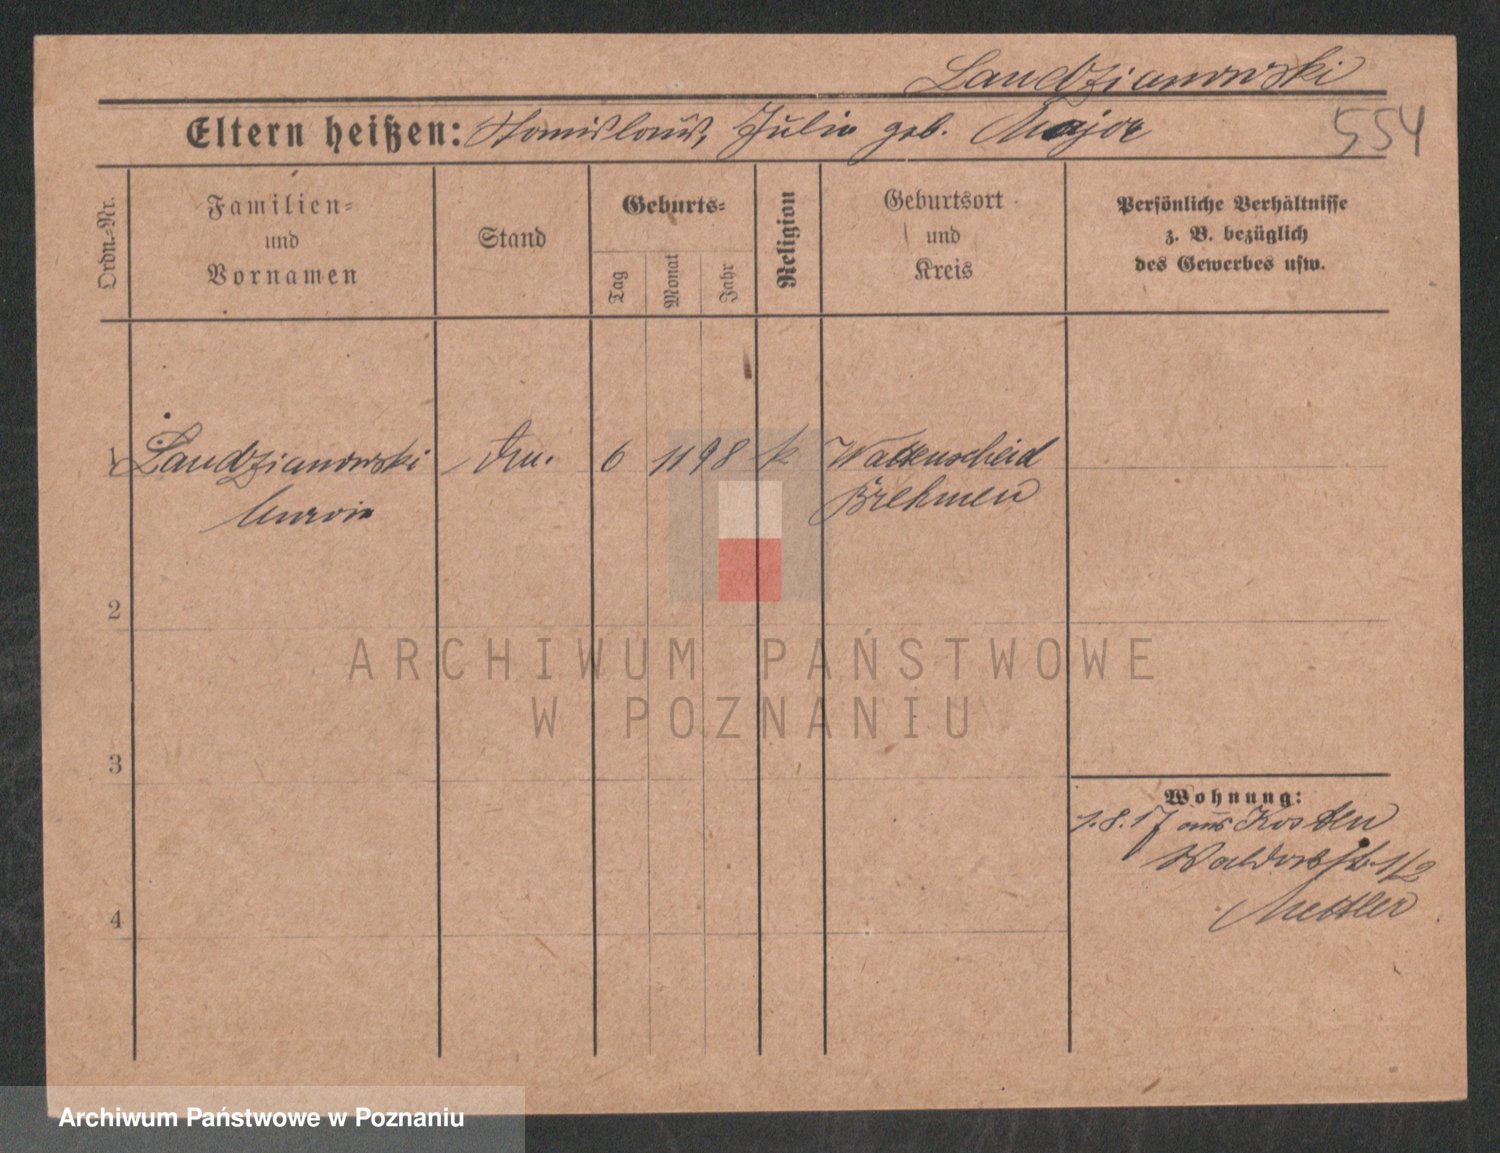 Landzianowski
554
Eltern heißen: Stanislaus, Julie geb. Major
Ordn.-Nr.
Familien-
und
Vornamen
Stand
Geburts-
Tag
Monat
Jahr
Religion
Geburtsort
und
Kreis
Persönliche Verhältnisse
z. B. bezüglich
des Gewerbes usw.
1 Landzianowski 6 11 98 k Wattenscheid
Brehmen
2
3
4
Wohnung:
1.8.17 aus Kosten
1/2
ARCHIWUM PAŃSTWOWE
W POZNANIU
Archiwum Państwowe w Poznaniu